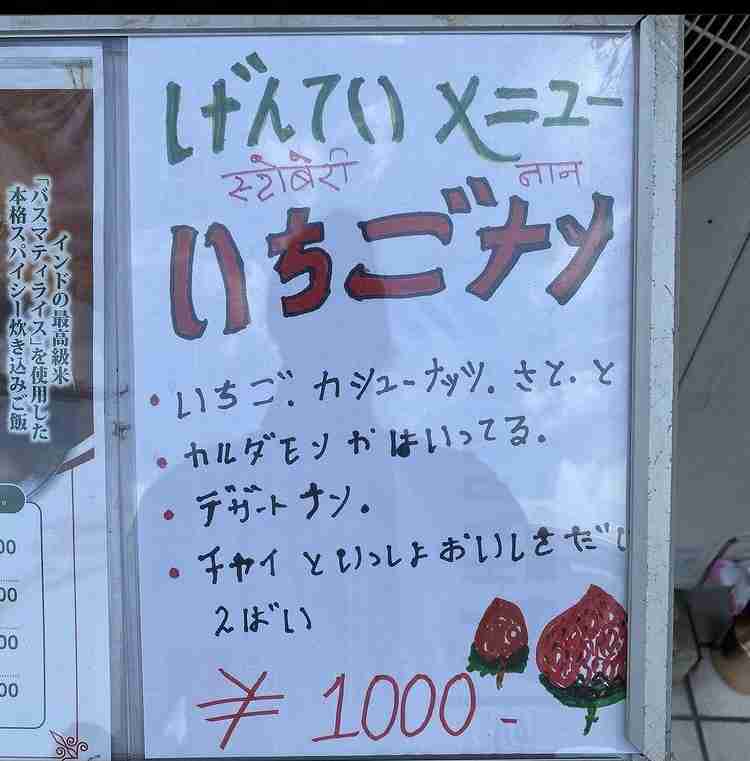 げんてい メニュー
स्टोबेरी नान
いちごナン
・いちご. カシューナッツ. さと. と
・カルダモン かはいってる.
・デザートナン.
・チャイ といっしょ おいしさ だし
2ばい
¥1000-
インドの最高級米
「バスマティライス」を使用した
本格スパイシー炊き込みご飯
00
00
00
00